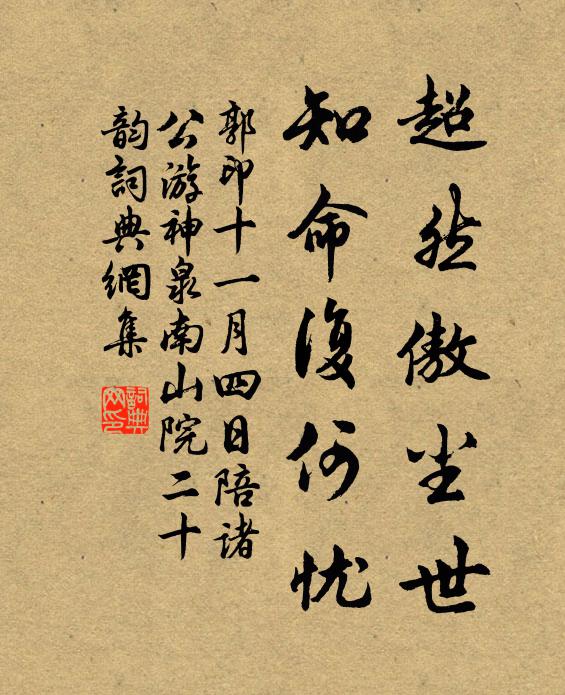 超然傲尘世
知命復何忧
郭印十一月四日陪诸
公游神泉南山院二十
韵詞典網集
詞典网印